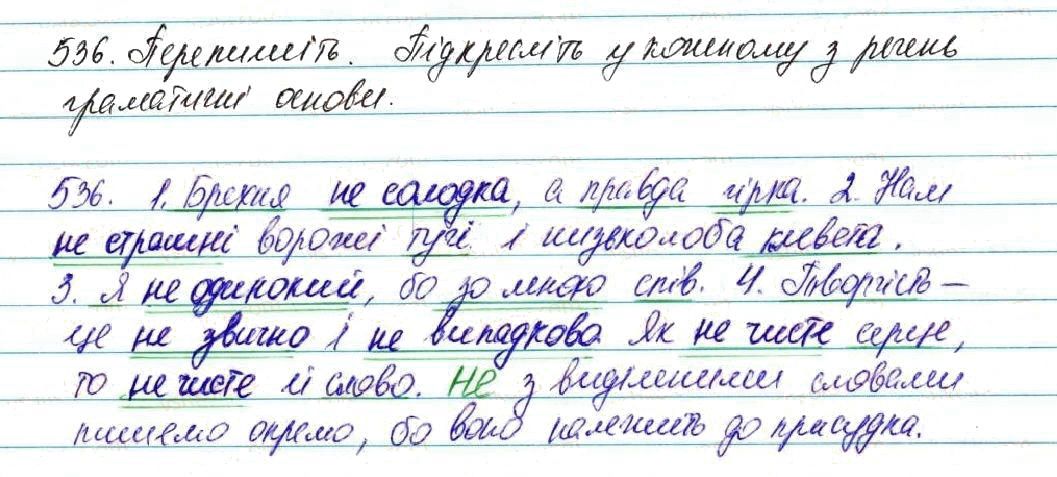 536. Перепишіть. Підкресліть у кожному з речень
граматичні основи.
536. 1. Брехня не солодка, а правда гірка. 2. Нам
не страшні ворожі пугі і низьколоба клевета.
3. Я не одинокий, бо зо мною спів. 4. Творчість –
це не звично і не випадково. Як не чисте серце,
то не чисте й слово. НЕ з виділеними словами
пишемо окремо, бо воно належить до присудка.